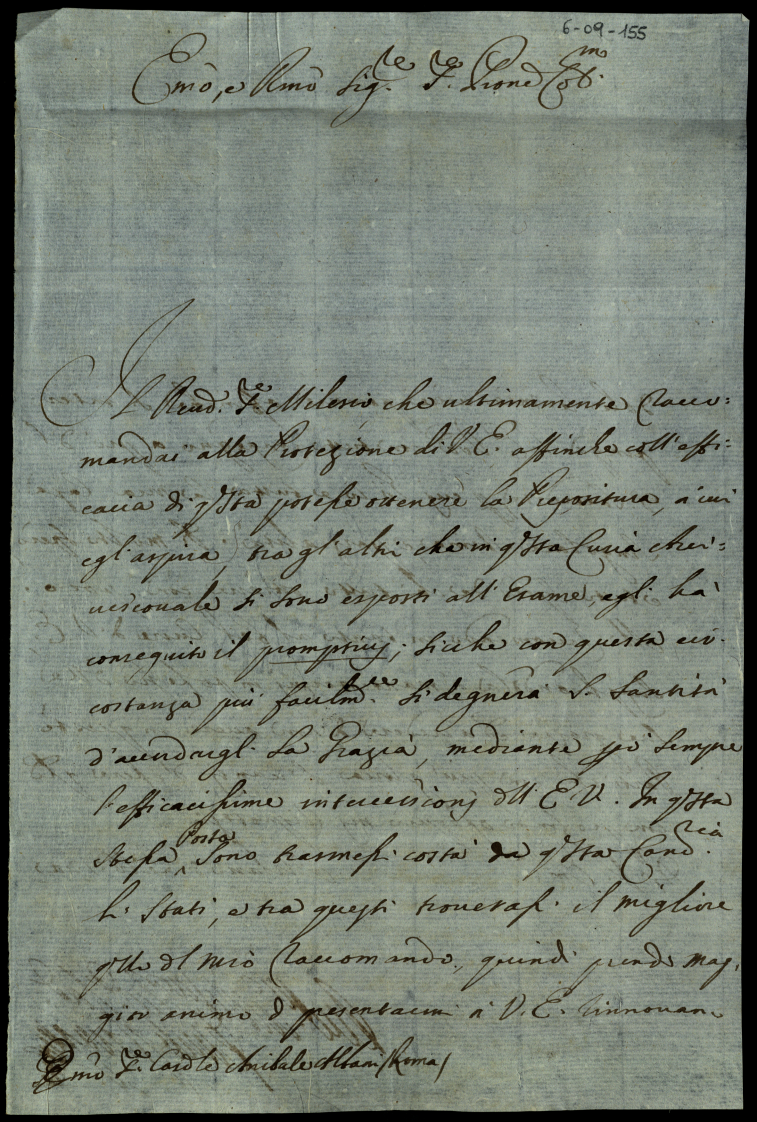 6-09-155
Emo, e Rmo Sig.re P.re Prone Col.mo
Il Revd. P.re Milesio che ultimamente racco=
mandai alla Protezione di V. E. affinche coll'effi=
cacia di qsta potesse ottenere la Prepositura, a cui
egl'aspira, tra gl'altri che in qsta Curia Arci=
vescovale si sono esposti all'Esame, egli há
conseguito il promptius; sicche con questa cir-
costanza più facilm.te si degnerà S. Santità
d'accordargli la Grazia, mediante però sempre
l'efficacissime intercessioni dll'E. V. In qsta
stessa Posta sono trasmessi costà da qsta Canc.ria
li Stati, e tra questi troverassi il migliore
qllo dl mio raccomando, quindi prendo mag.
gior animo d presentarmi à V. E. rinnovan-
Emo P.re Cardle Anibale Albani /Roma/